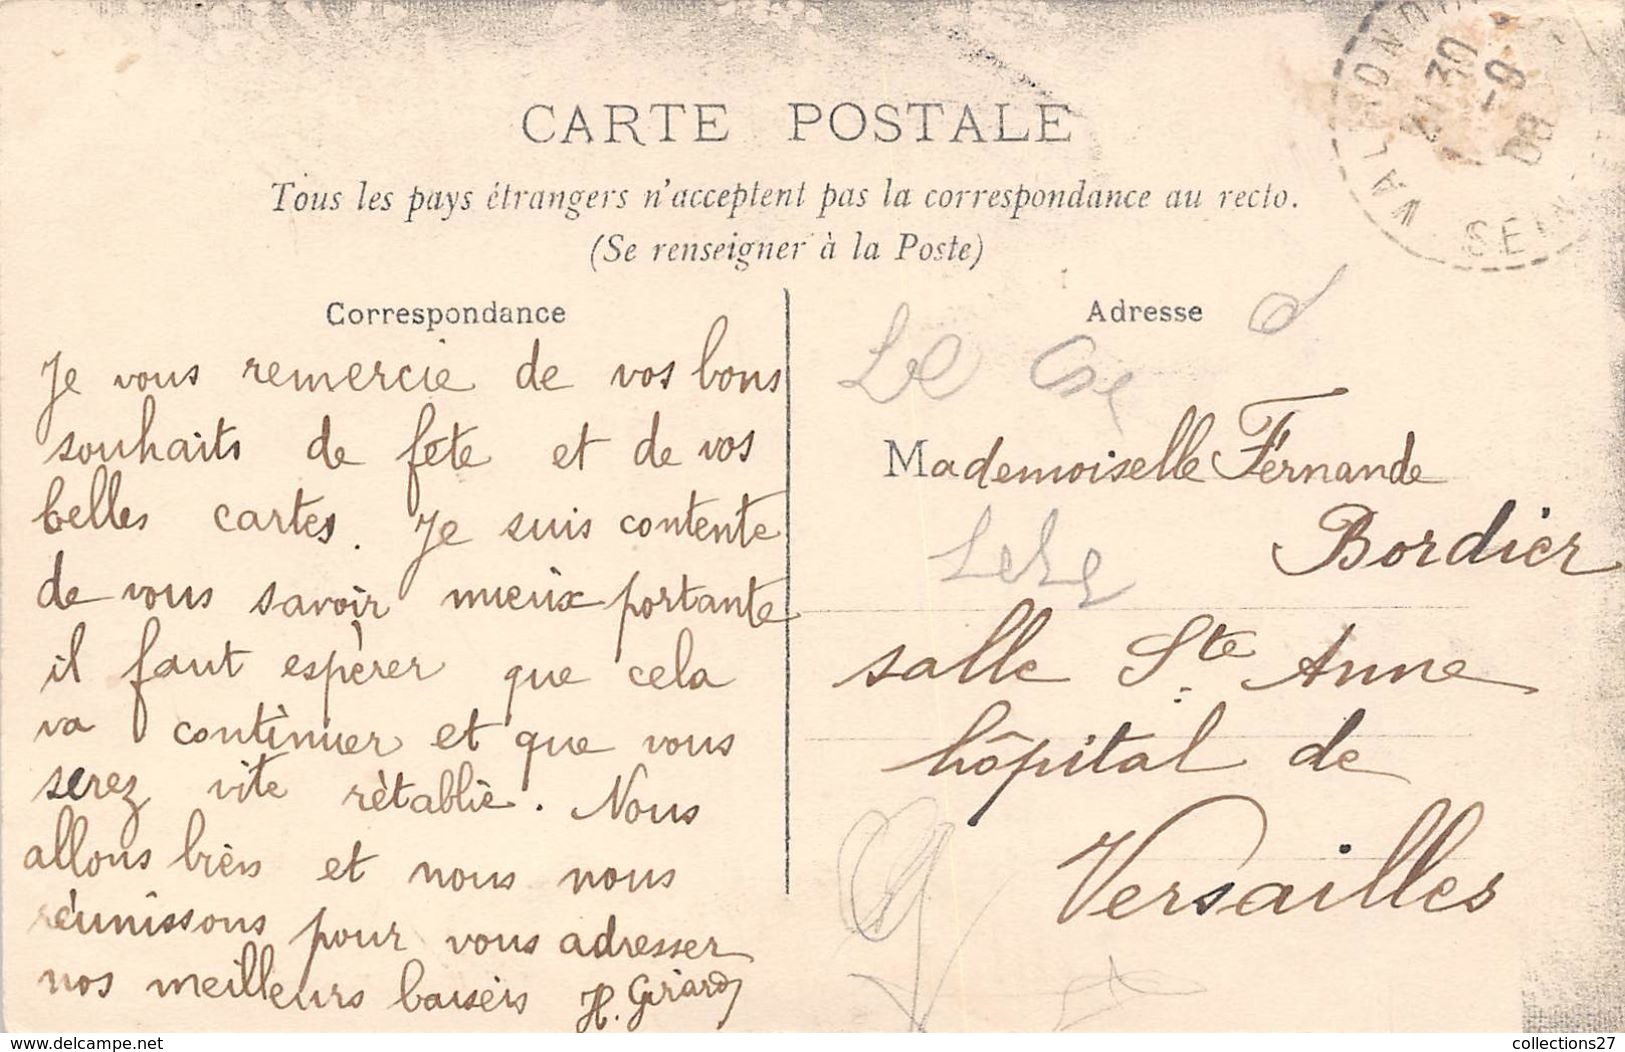 CARTE POSTALE
Tous les pays étrangers n'acceptent pas la correspondance au recto.
(Se renseigner à la Poste)
Correspondance
Je vous remercie de vos bons
souhaits de fête et de vos
belles cartes. Je suis contente
de vous savoir mieux portante
il faut espérer que cela
va continuer et que vous
serez vite rétablie. Nous
allons bien et nous nous
réunissons pour vous adresser
nos meilleurs baisers H. Girard
Adresse
Mademoiselle Fernande
Bordier
salle Ste Anne
hôpital de
Versailles
21 30
-9
08
collections27